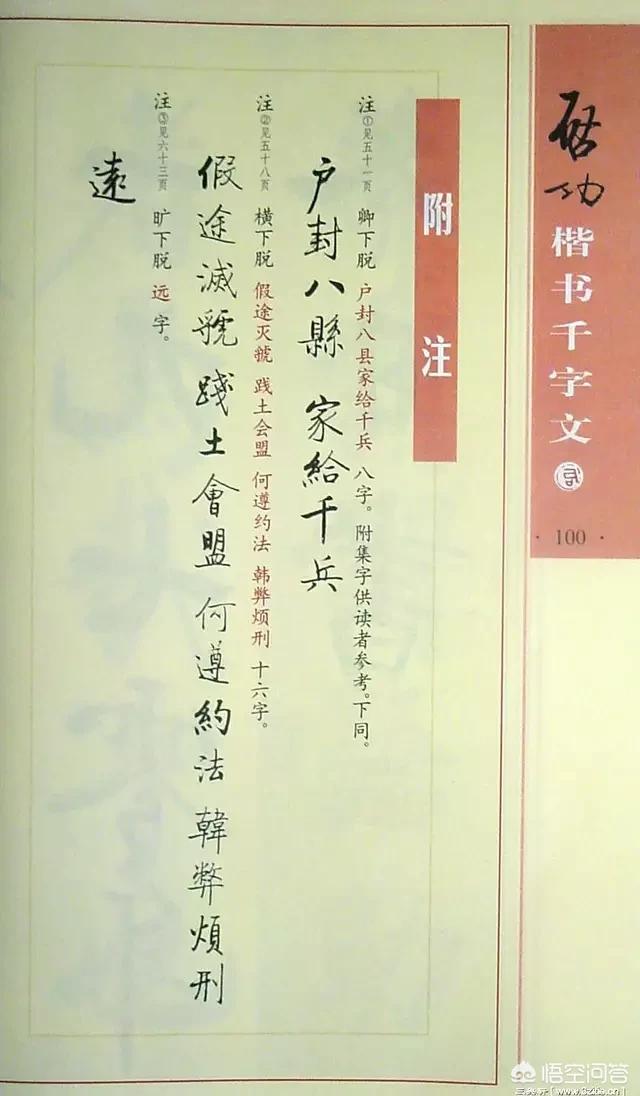 启功
楷书千字文
· 100 ·
附注
注①见五十一页 卿下脱 户封八县家给千兵 八字。附集字供读者参考。下同。
户封八縣 家給千兵
注②见五十八页 横下脱 假途灭虢 践土会盟 何遵约法 韩弊烦刑 十六字。
假途滅虢 踐土會盟 何遵約法 韓弊煩刑
注③见六十三页 旷下脱 远 字。
遠
悟空问答